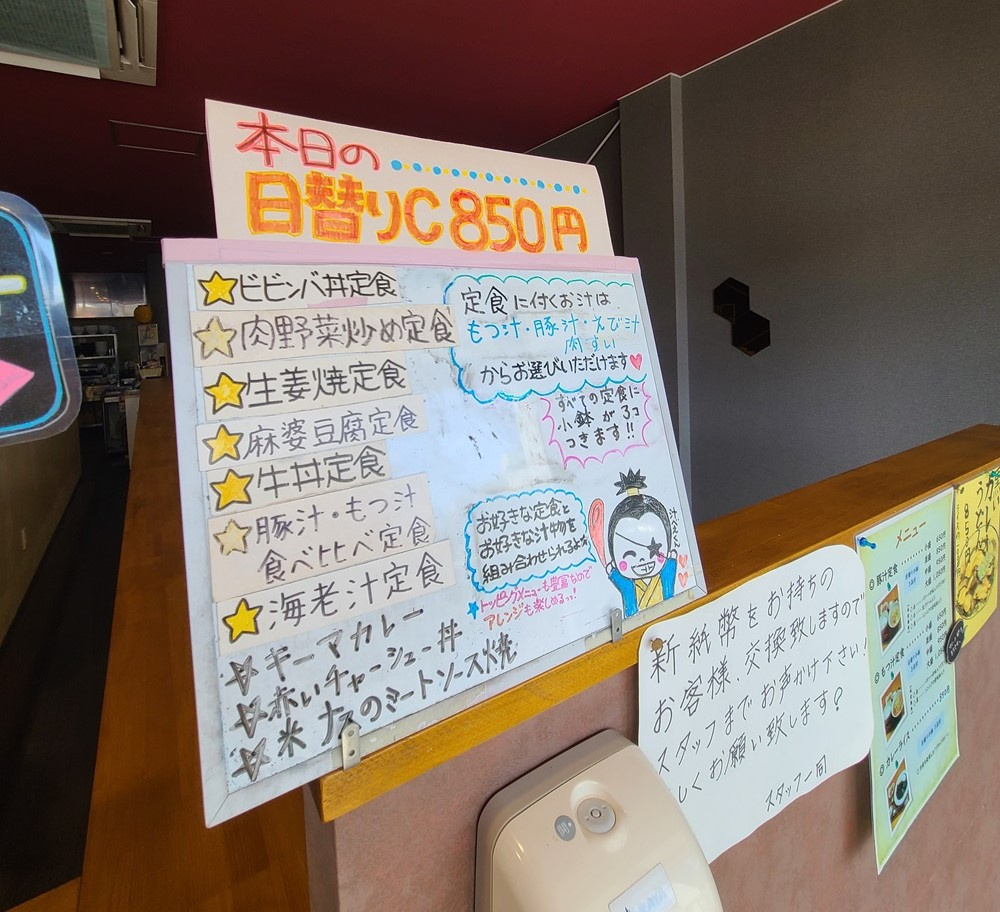 本日の
日替りC 850円
ビビンバ丼定食
肉野菜炒め定食
生姜焼定食
麻婆豆腐定食
牛丼定食
豚汁・もつ汁
食べ比べ定食
海老汁定食
キーマカレー
赤いチャーシュー丼
米ナスのミートソース焼
定食に付くお汁は
もつ汁・豚汁・えび汁
肉すい
からお選びいただけます
すべての定食に
小鉢が3コ
つきます!!
お好きな定食と
お好きな汁物を
組み合わせられるよ
トッピングメニューも豊富なので
アレンジも楽しめるっ!
新紙幣をお持ちの
お客様、交換致しますので
スタッフまでお声かけ下さい!
しくお願い致します
スタッフ一同
メニュー
豚汁定食
もつ汁定食
カレーライス